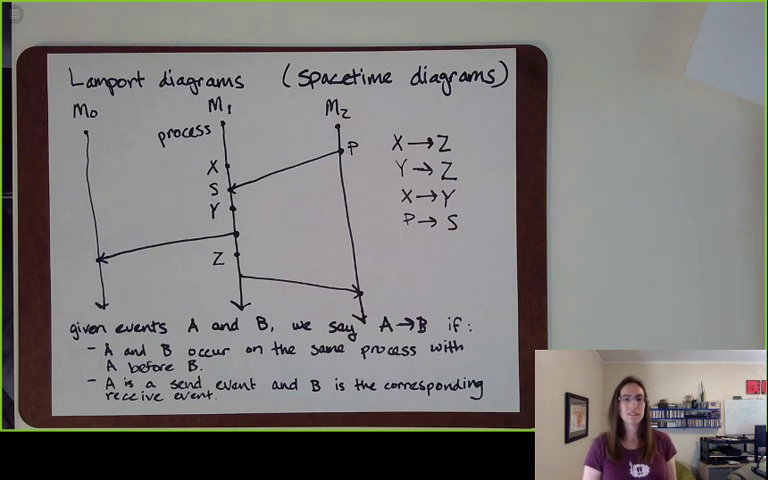 Lamport diagrams (spacetime diagrams)
M0 M1 M2
process
P
X
S
Y
Z
X → Z
Y → Z
X → Y
P → S
given events A and B, we say A → B if:
- A and B occur on the same process with
A before B.
- A is a send event and B is the corresponding
receive event.
!!